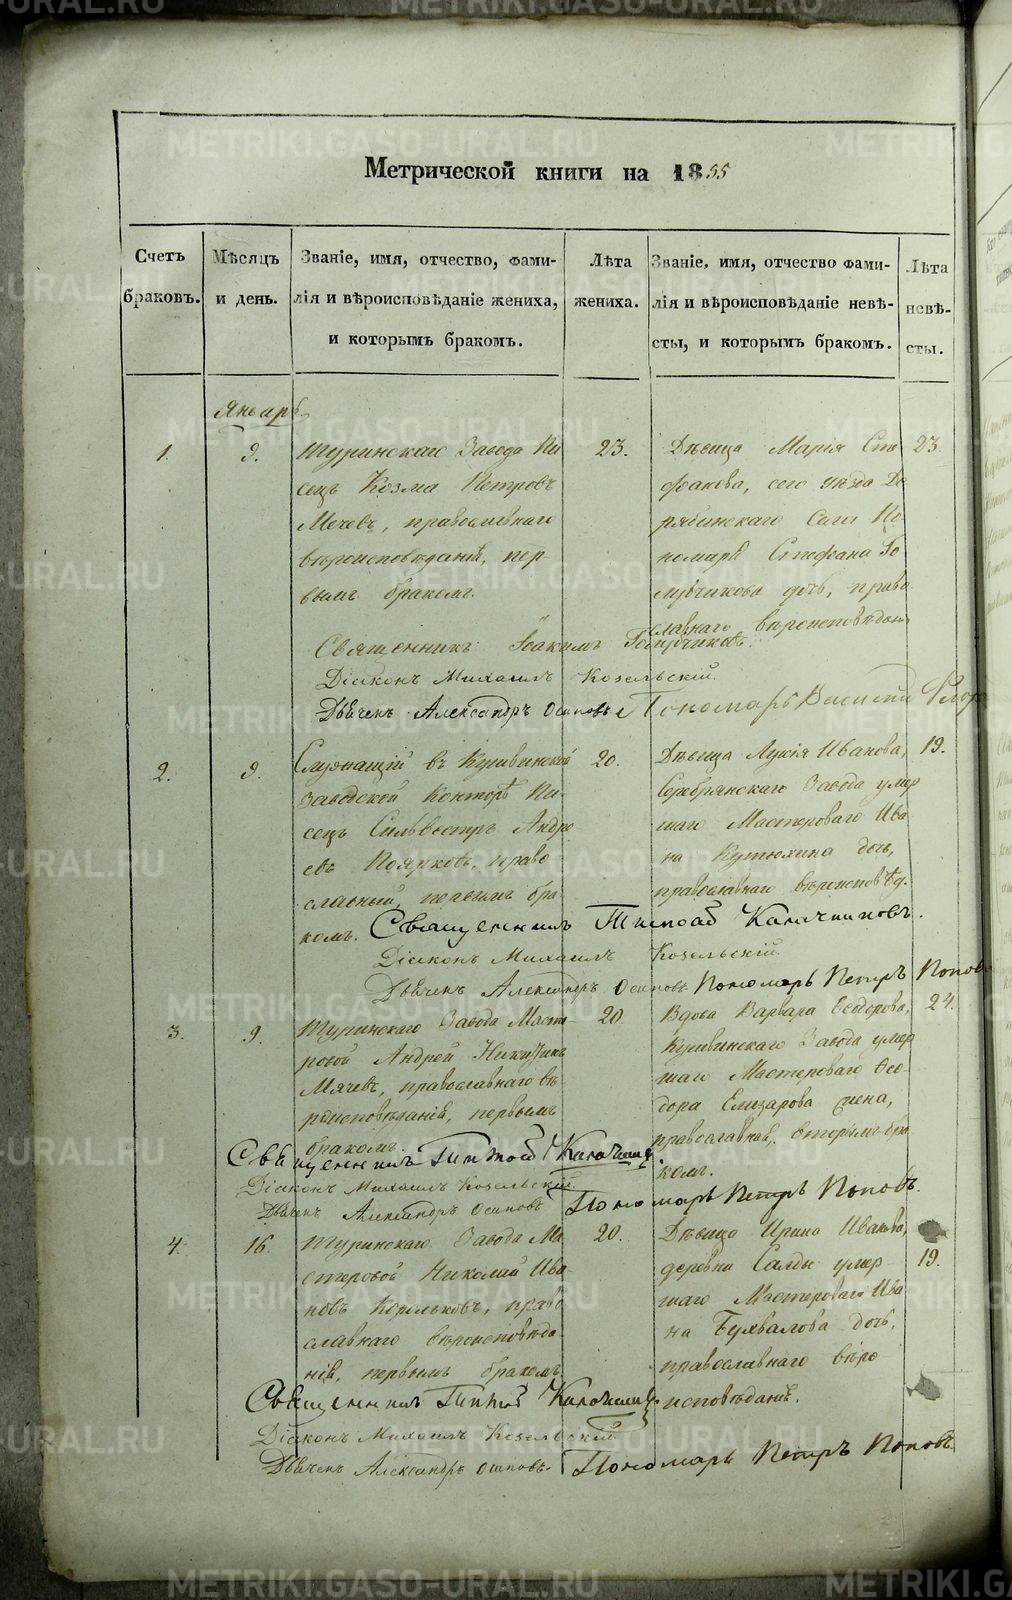 Метрической книги на 1855
Счетъ браковъ.
Мѣсяцъ и день.
Званіе, имя, отчество, фами-
лія и вѣроисповѣданіе жениха,
и которымъ бракомъ.
Лѣта жениха.
Званіе, имя, отчество фами-
лія и вѣроисповѣданіе невѣ-
сты, и которымъ бракомъ.
Лѣта невѣ-
сты.
Январь
1.
9.
Туринскаго Завода Пи
сецъ Козма Петровъ
Мячевъ, православнаго
вѣроисповѣданія, пер-
вымъ бракомъ.
23.
Дѣвица Марія Сте
фанова, сего уѣзда
Села По
номаря Стефана
дочь, право
славнаго вѣроисповѣдан
23.
Священникъ Іоакимъ
Діаконъ Михаилъ Козельскій.
Дьячекъ Александръ Осиповъ Пономарь Василій
2.
9.
Служащій въ Кушвинской
Заводской Конторѣ Пи-
сецъ Сильвестръ Андре
евъ Поярковъ, право
славный, первымъ бра
комъ.
20.
Дѣвица Лукія Иванова,
Серебрянскаго Завода умер
шаго Мастероваго Ива
на Кутюхина дочь,
православнаго вѣроисповѣд.
19.
Священникъ
Діаконъ Михаилъ Козельскій
Дьячекъ Александръ Осиповъ Пономарь Петръ Поповъ
3.
9.
Туринскаго Завода Масте-
ровой Андрей Никитинъ
Мячевъ, православнаго вѣ
роисповѣданія, первымъ
бракомъ.
20
Вдова Варвара Ѳедорова,
Кушвинскаго Завода умер
шаго Мастероваго Ѳео-
дора Елизарова жена,
православная, вторымъ бра
комъ.
24.
Священникъ
Діаконъ Михаилъ Козельскій
Дьячекъ Александръ Осиповъ Пономарь Петръ Поповъ.
4.
16.
Туринскаго Завода Ма
стеровой Николай Ива-
новъ Корольковъ, право
славнаго вѣроисповѣда-
нія, первымъ бракомъ
20.
Дѣвица Ирина Иванова,
деревни Салды умер
шаго Мастероваго Ива
на Бухвалова дочь,
православнаго вѣро
исповѣданія.
19.
Священникъ
Діаконъ Михаилъ Козельскій
Дьячекъ Александръ Осиповъ. Пономарь Петръ Поповъ
METRIKI.GASO-URAL.RU